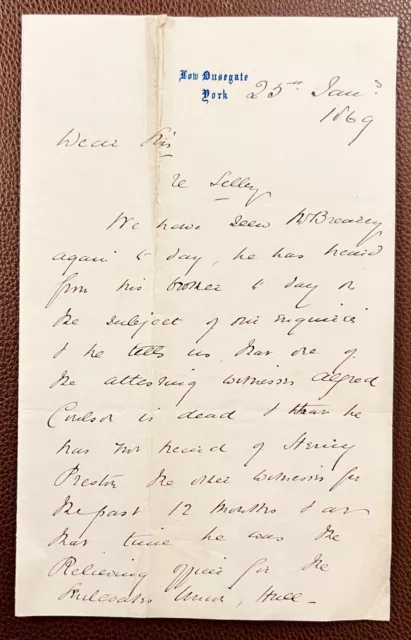 Low Ousegate
York
25th Jany
1869
Dear Sir
re Selby
We have seen Mr Brearey
again to day, he has heard
from his brother to day on
the subject of our enquiries
& he tells us that one of
the attesting witnesses Alfred
Coulson is dead & that he
has not heard of Henry
Preston the other witness for
the past 12 months & at
that time he was the
Relieving officer for the
Sculcoates Union, Hull –